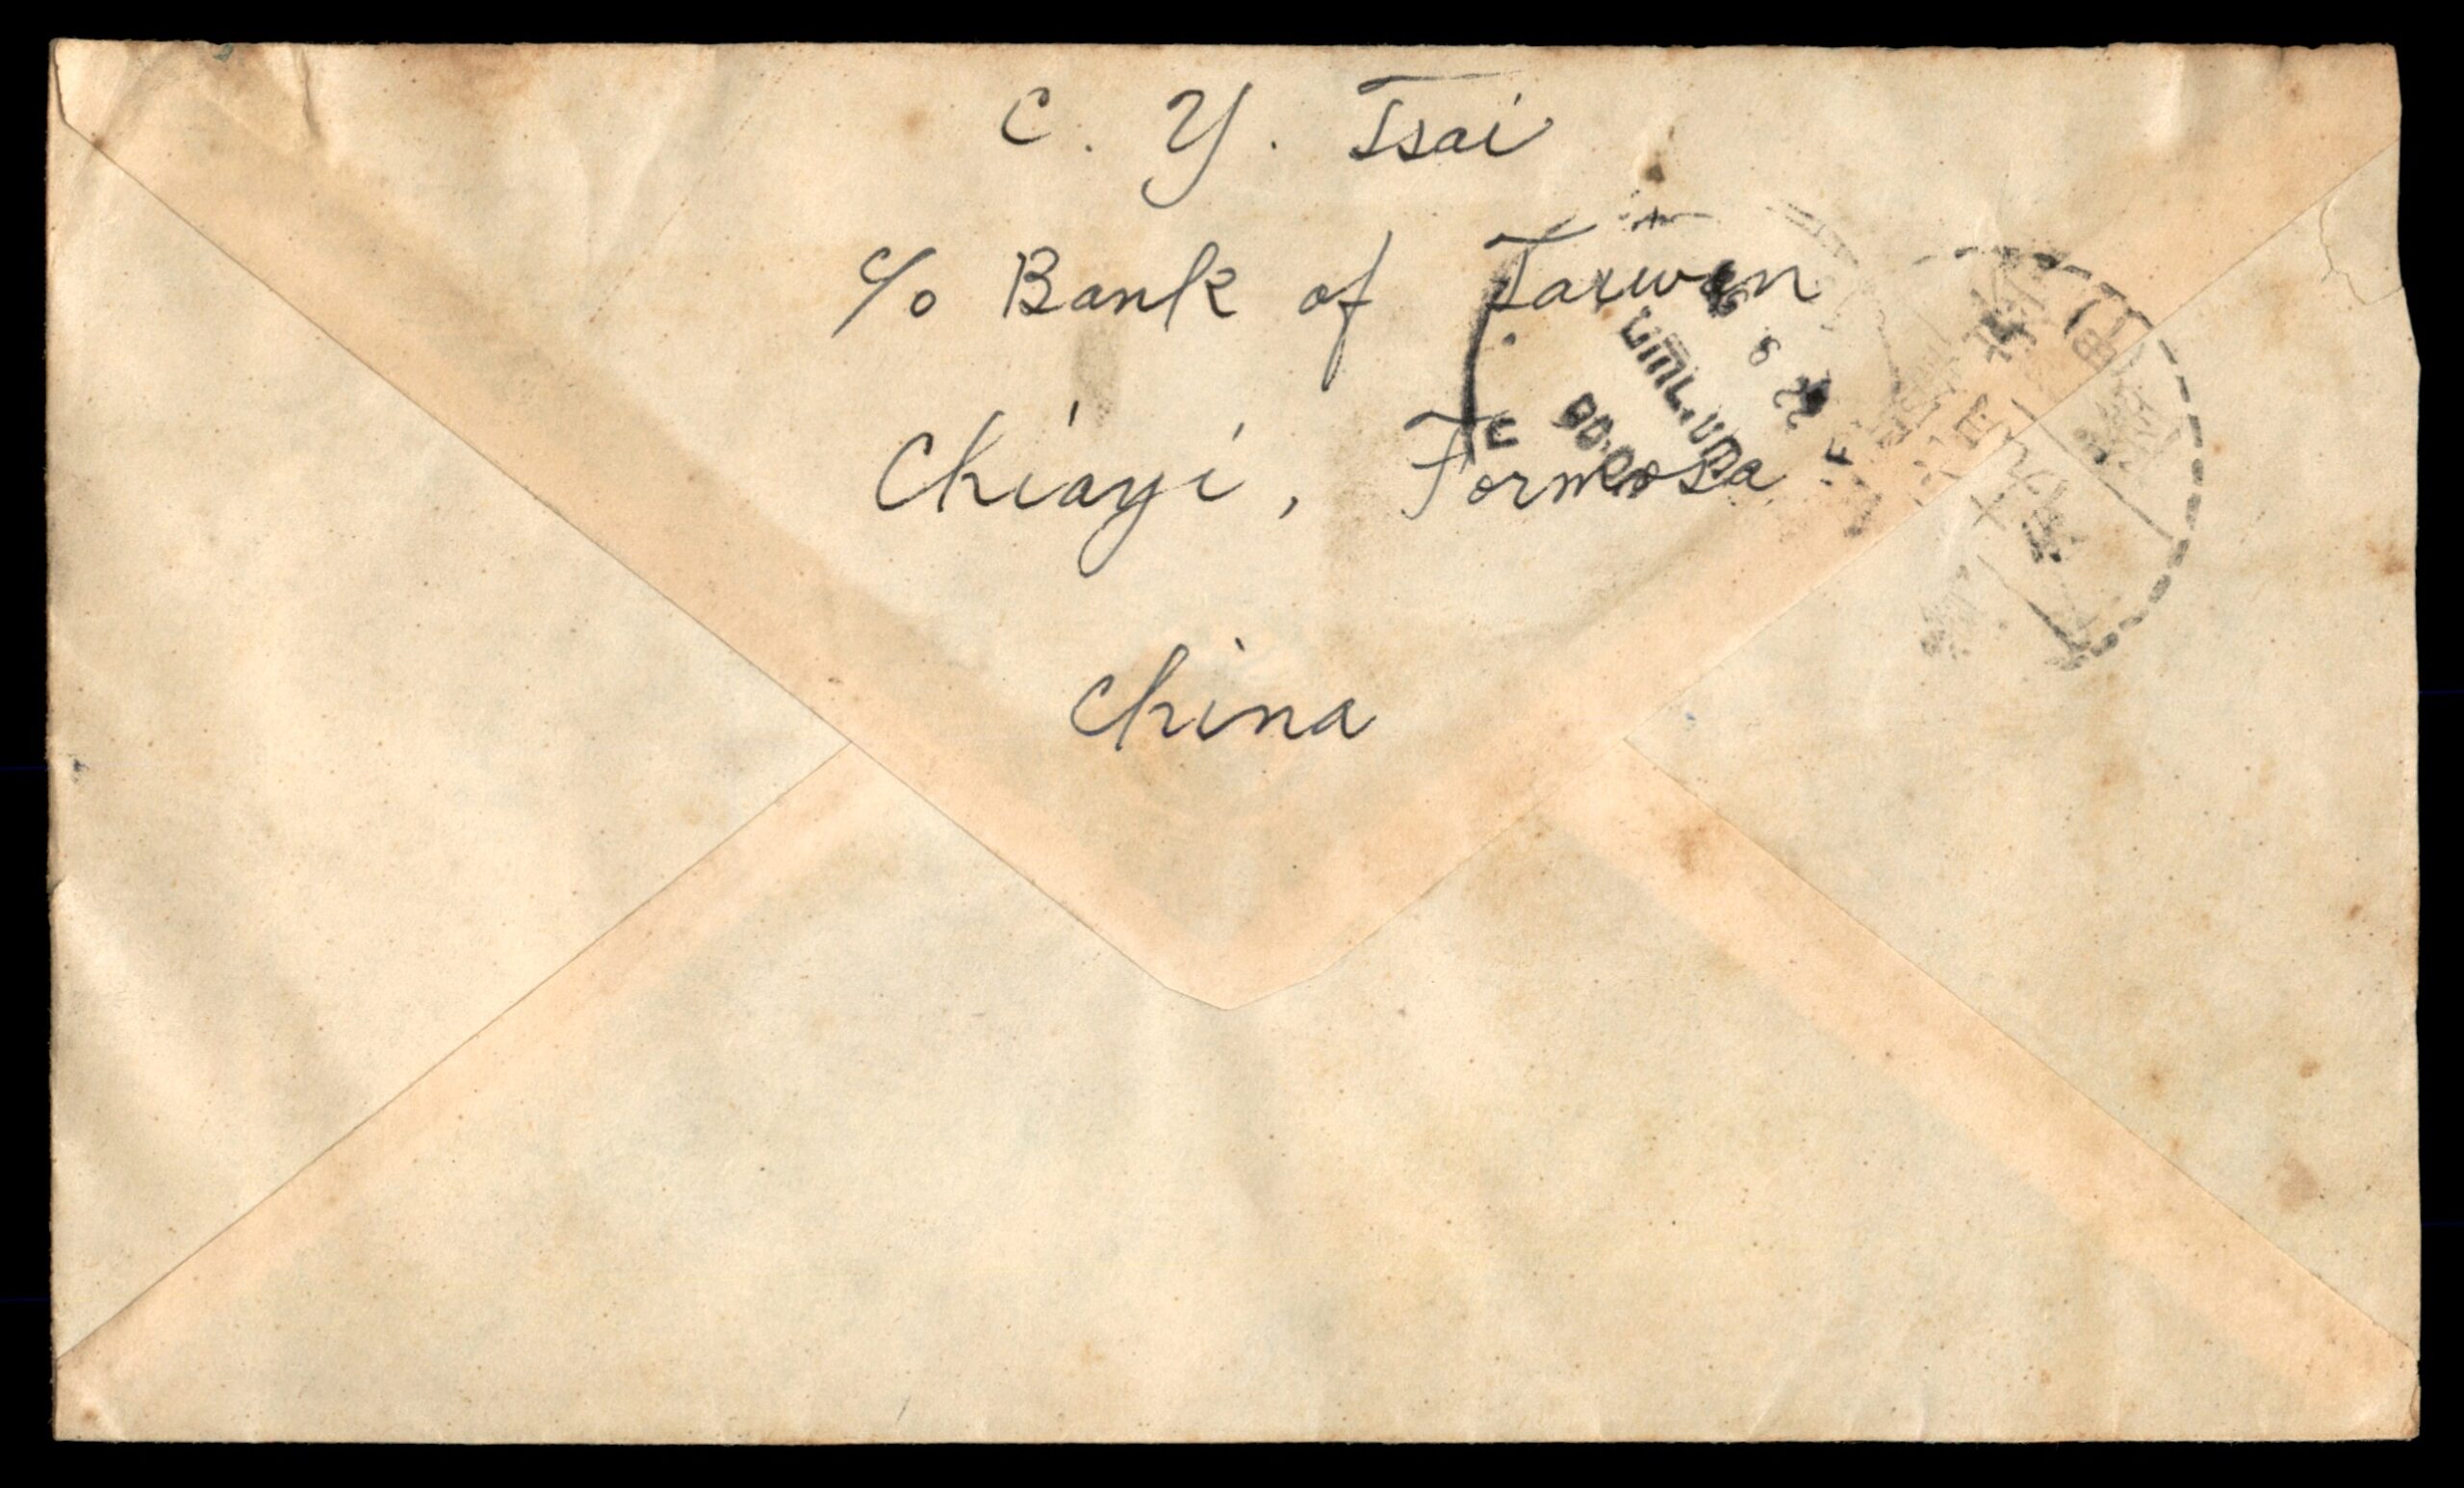 C. Y. Tsai
c/o Bank of Taiwan
Chiayi, Formosa
China